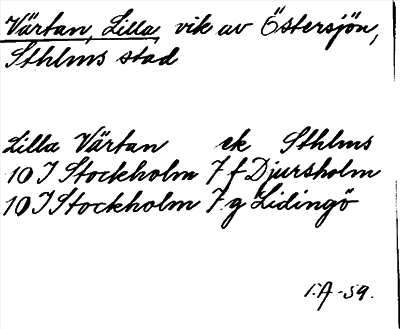 Värtan, Lilla, vik av Östersjön,
Sthlms stad
Lilla Värtan ek Sthlms
10 I Stockholm 7 f Djursholm
10 I Stockholm 7 g Lidingö
I.A-59.